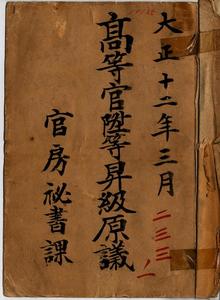 大正十二年三月
二三三ノ一
高等官陞等昇級原議
官房祕書課